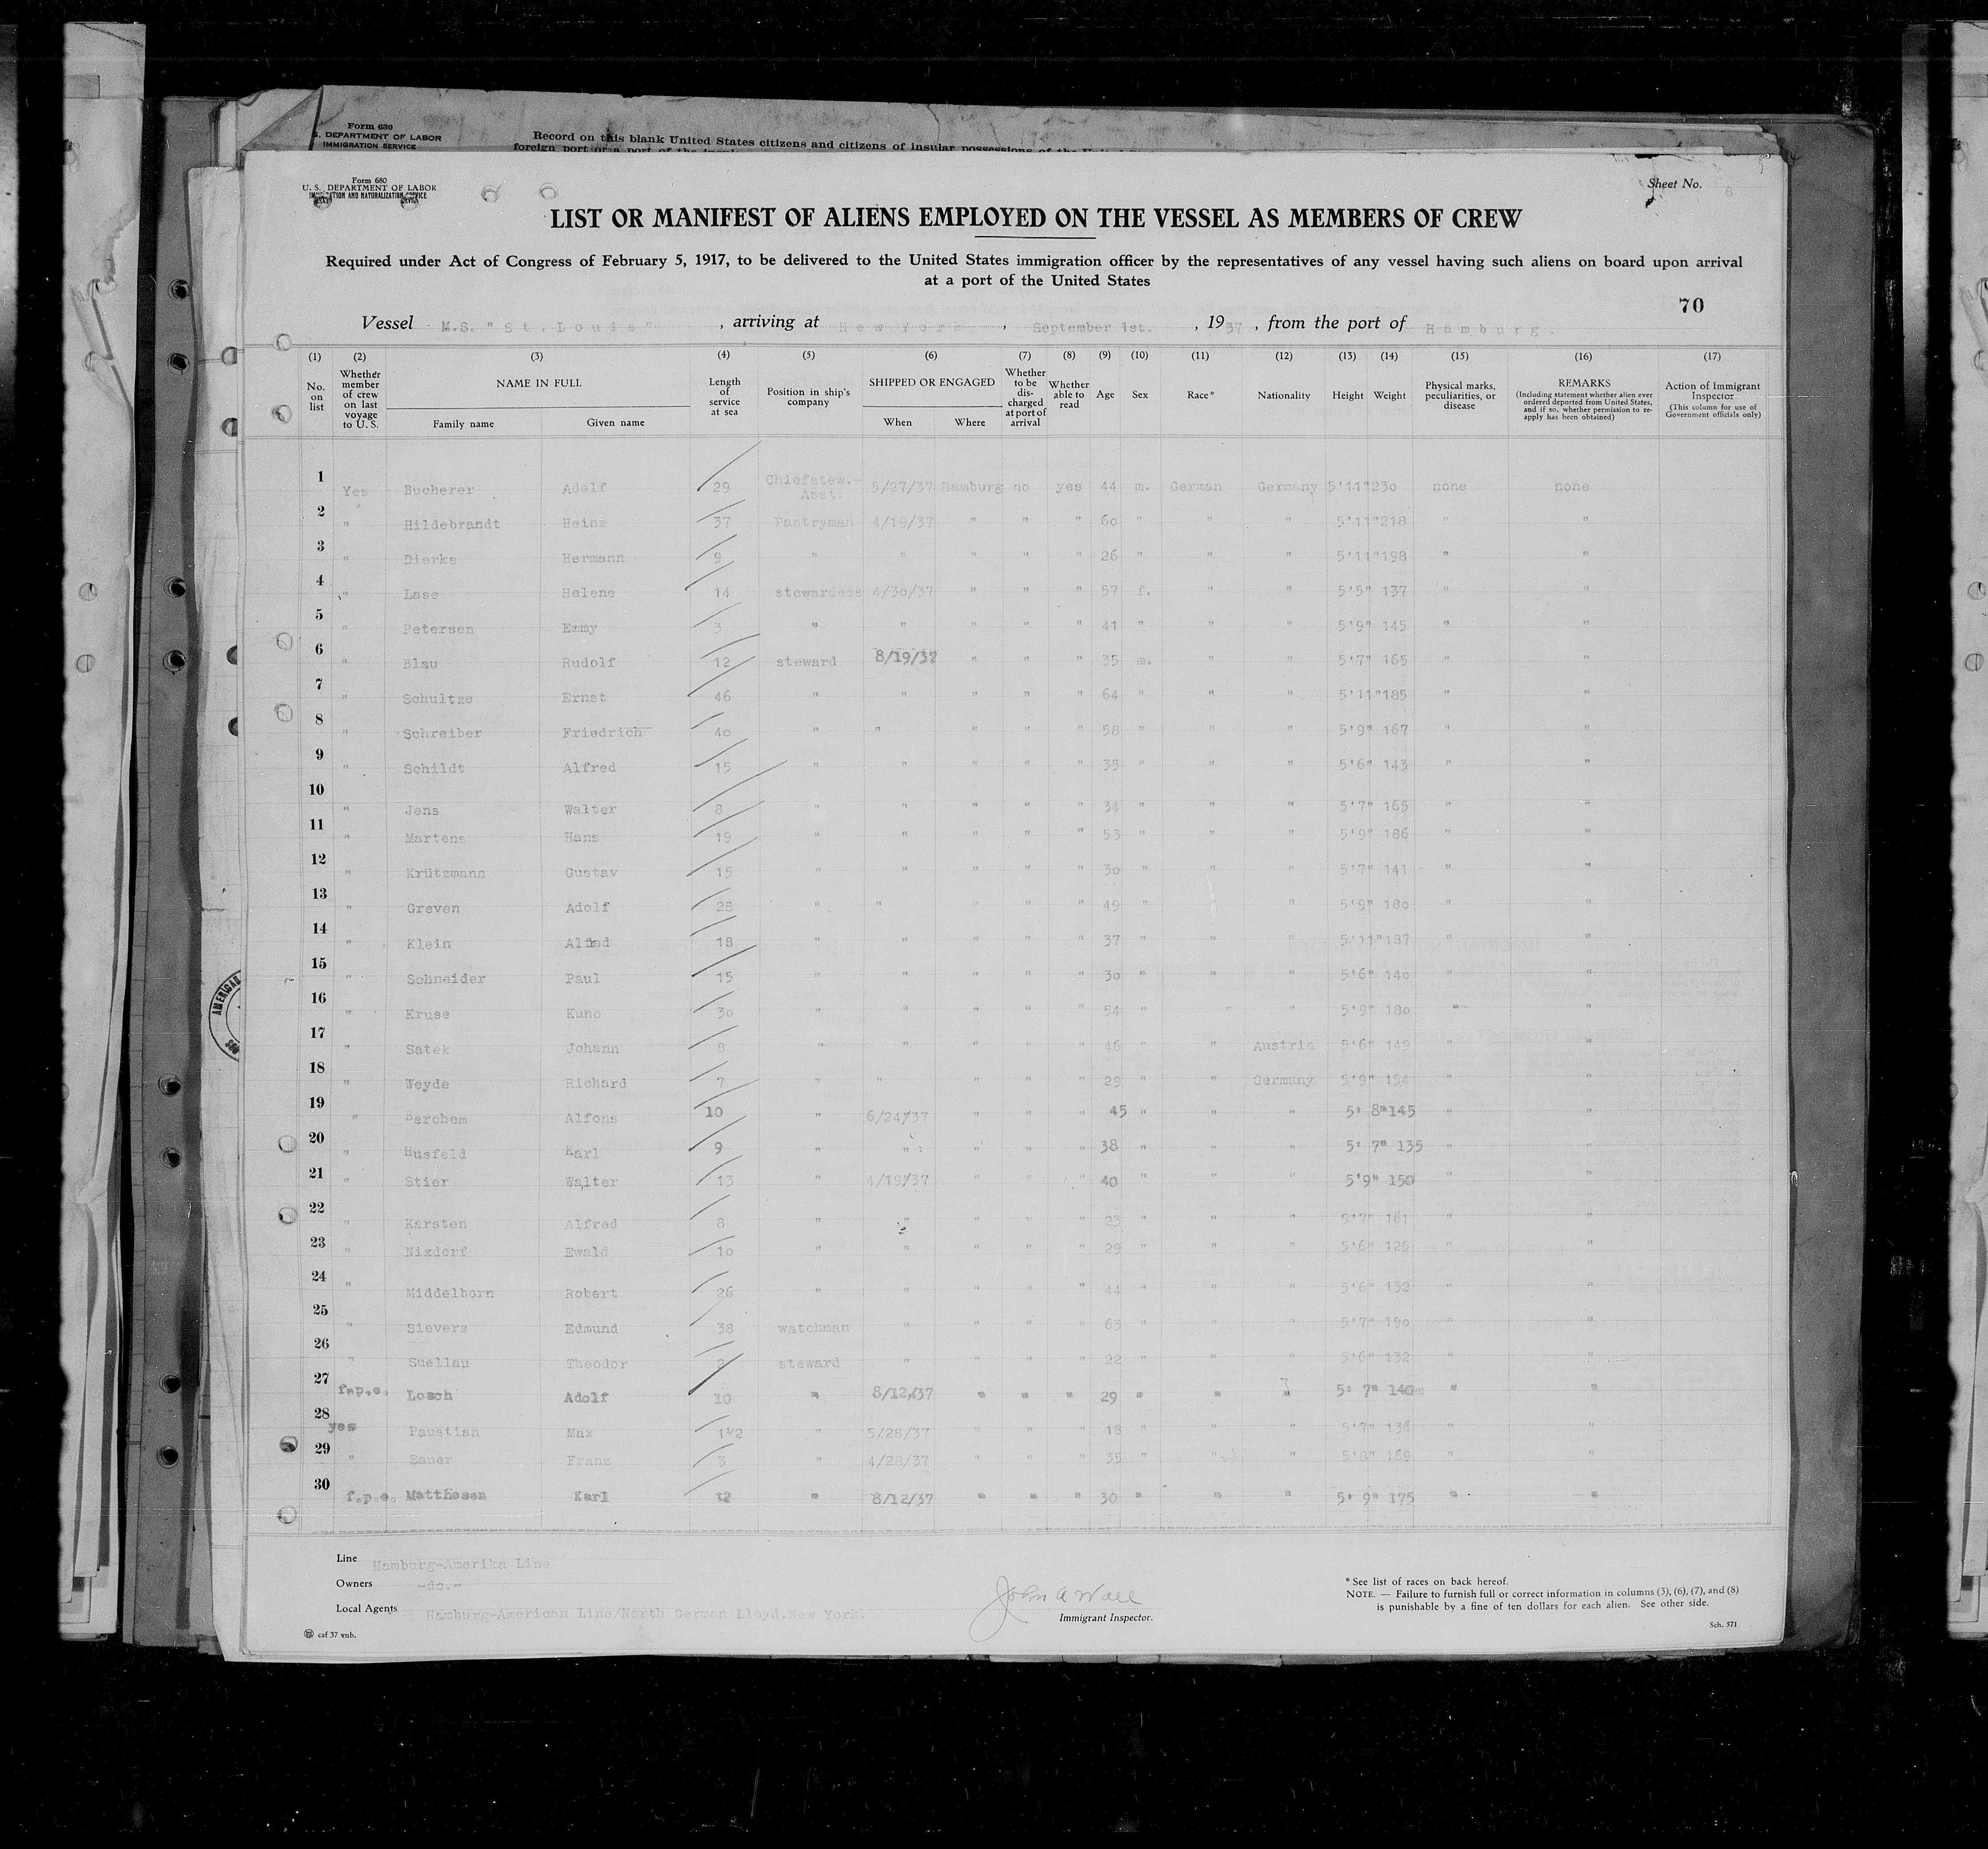 Form 630
S. DEPARTMENT OF LABOR
IMMIGRATION SERVICE
Record on this blank United States citizens and citizens of insular possessions of the
foreign port or a port of the
Form 680
U. S. DEPARTMENT OF LABOR
IMMIGRATION AND NATURALIZATION SERVICE
Sheet No. 8
LIST OR MANIFEST OF ALIENS EMPLOYED ON THE VESSEL AS MEMBERS OF CREW
Required under Act of Congress of February 5, 1917, to be delivered to the United States immigration officer by the representatives of any vessel having such aliens on board upon arrival
at a port of the United States
70
Vessel M.S. "St. Louis", arriving at New York, September 1st., 1937, from the port of Hamburg.
(1) (2) (3) (4) (5) (6) (7) (8) (9) (10) (11) (12) (13) (14) (15) (16) (17)
No. on list
Whether member of crew on last voyage to U. S.
NAME IN FULL
Family name Given name
Length of service at sea
Position in ship's company
SHIPPED OR ENGAGED
When Where
Whether to be discharged at port of arrival
Whether able to read
Age
Sex
Race*
Nationality
Height
Weight
Physical marks, peculiarities, or disease
REMARKS
(Including statement whether alien ever ordered deported from United States, and if so, whether permission to reapply has been obtained)
Action of Immigrant Inspector
(This column for use of Government officials only)
1 Yes Bucherer Adolf 29 Chiefstew.-Asst. 5/27/37 Hamburg no yes 44 m. German Germany 5'11" 230 none none
2 " Hildebrandt Heinz 37 Pantryman 4/19/37 " " " 60 " " " 5'11" 218 " "
3 " Dierks Hermann 9 " " " " " 26 " " " 5'11" 198 " "
4 " Lase Helene 14 stewardess 4/30/37 " " " 57 f. " " 5'5" 137 " "
5 " Petersen Emmy 3 " " " " " 41 " " " 5'9" 145 " "
6 " Blau Rudolf 12 steward 8/19/37 " " " 35 m. " " 5'7" 165 " "
7 " Schultze Ernst 46 " " " " " 64 " " " 5'11" 185 " "
8 " Schreiber Friedrich 40 " " " " " 58 " " " 5'9" 167 " "
9 " Schildt Alfred 15 " " " " " 35 " " " 5'6" 143 " "
10 " Jens Walter 8 " " " " " 34 " " " 5'7" 165 " "
11 " Martens Hans 19 " " " " " 53 " " " 5'9" 186 " "
12 " Krützmann Gustav 15 " " " " " 30 " " " 5'7" 141 " "
13 " Greven Adolf 28 " " " " " 49 " " " 5'9" 180 " "
14 " Klein Alfred 18 " " " " " 37 " " " 5'11" 187 " "
15 " Schneider Paul 15 " " " " " 30 " " " 5'6" 140 " "
16 " Kruse Kuno 30 " " " " " 54 " " " 5'9" 180 " "
17 " Satek Johann 8 " " " " " 46 " " Austria 5'6" 149 " "
18 " Weyde Richard 7 " " " " " 29 " " Germany 5'9" 154 " "
19 " Berchem Alfons 10 " 6/24/37 " " " 45 " " " 5' 8" 145 " "
20 " Husfeld Karl 9 " " " " " 38 " " " 5' 7" 135 " "
21 " Stier Walter 13 " 4/19/37 " " " 40 " " " 5'9" 150 " "
22 " Karsten Alfred 8 " " " " " 23 " " " 5'7" 161 " "
23 " Nixdorf Ewald 10 " " " " " 29 " " " 5'6" 125 " "
24 " Middelborn Robert 26 " " " " " 44 " " " 5'6" 132 " "
25 " Sievers Edmund 38 watchman " " " " 63 " " " 5'7" 190 " "
26 " Suellau Theodor 2 steward " " " " 22 " " " 5'6" 132 " "
27 f.p.e. Losch Adolf 10 " 8/12/37 " " " 29 " " " 5' 7" 140 " "
28 yes Paustian Max 1 1/2 " 5/28/37 " " " 18 " " " 5'7" 136 " "
29 " Sauer Franz 3 " 4/28/37 " " " 35 " " " 5'8" 169 " "
30 f.p.e. Matthesen Karl 12 " 8/12/37 " " " 30 " " " 5' 9" 175 " "
Line Hamburg-Amerika Line
Owners -do.-
Local Agents Hamburg-American Line/North German Lloyd.New York.
John A Wall
Immigrant Inspector.
* See list of races on back hereof.
NOTE. — Failure to furnish full or correct information in columns (3), (6), (7), and (8)
is punishable by a fine of ten dollars for each alien. See other side.
caf 37 vnb.
Sch. 571